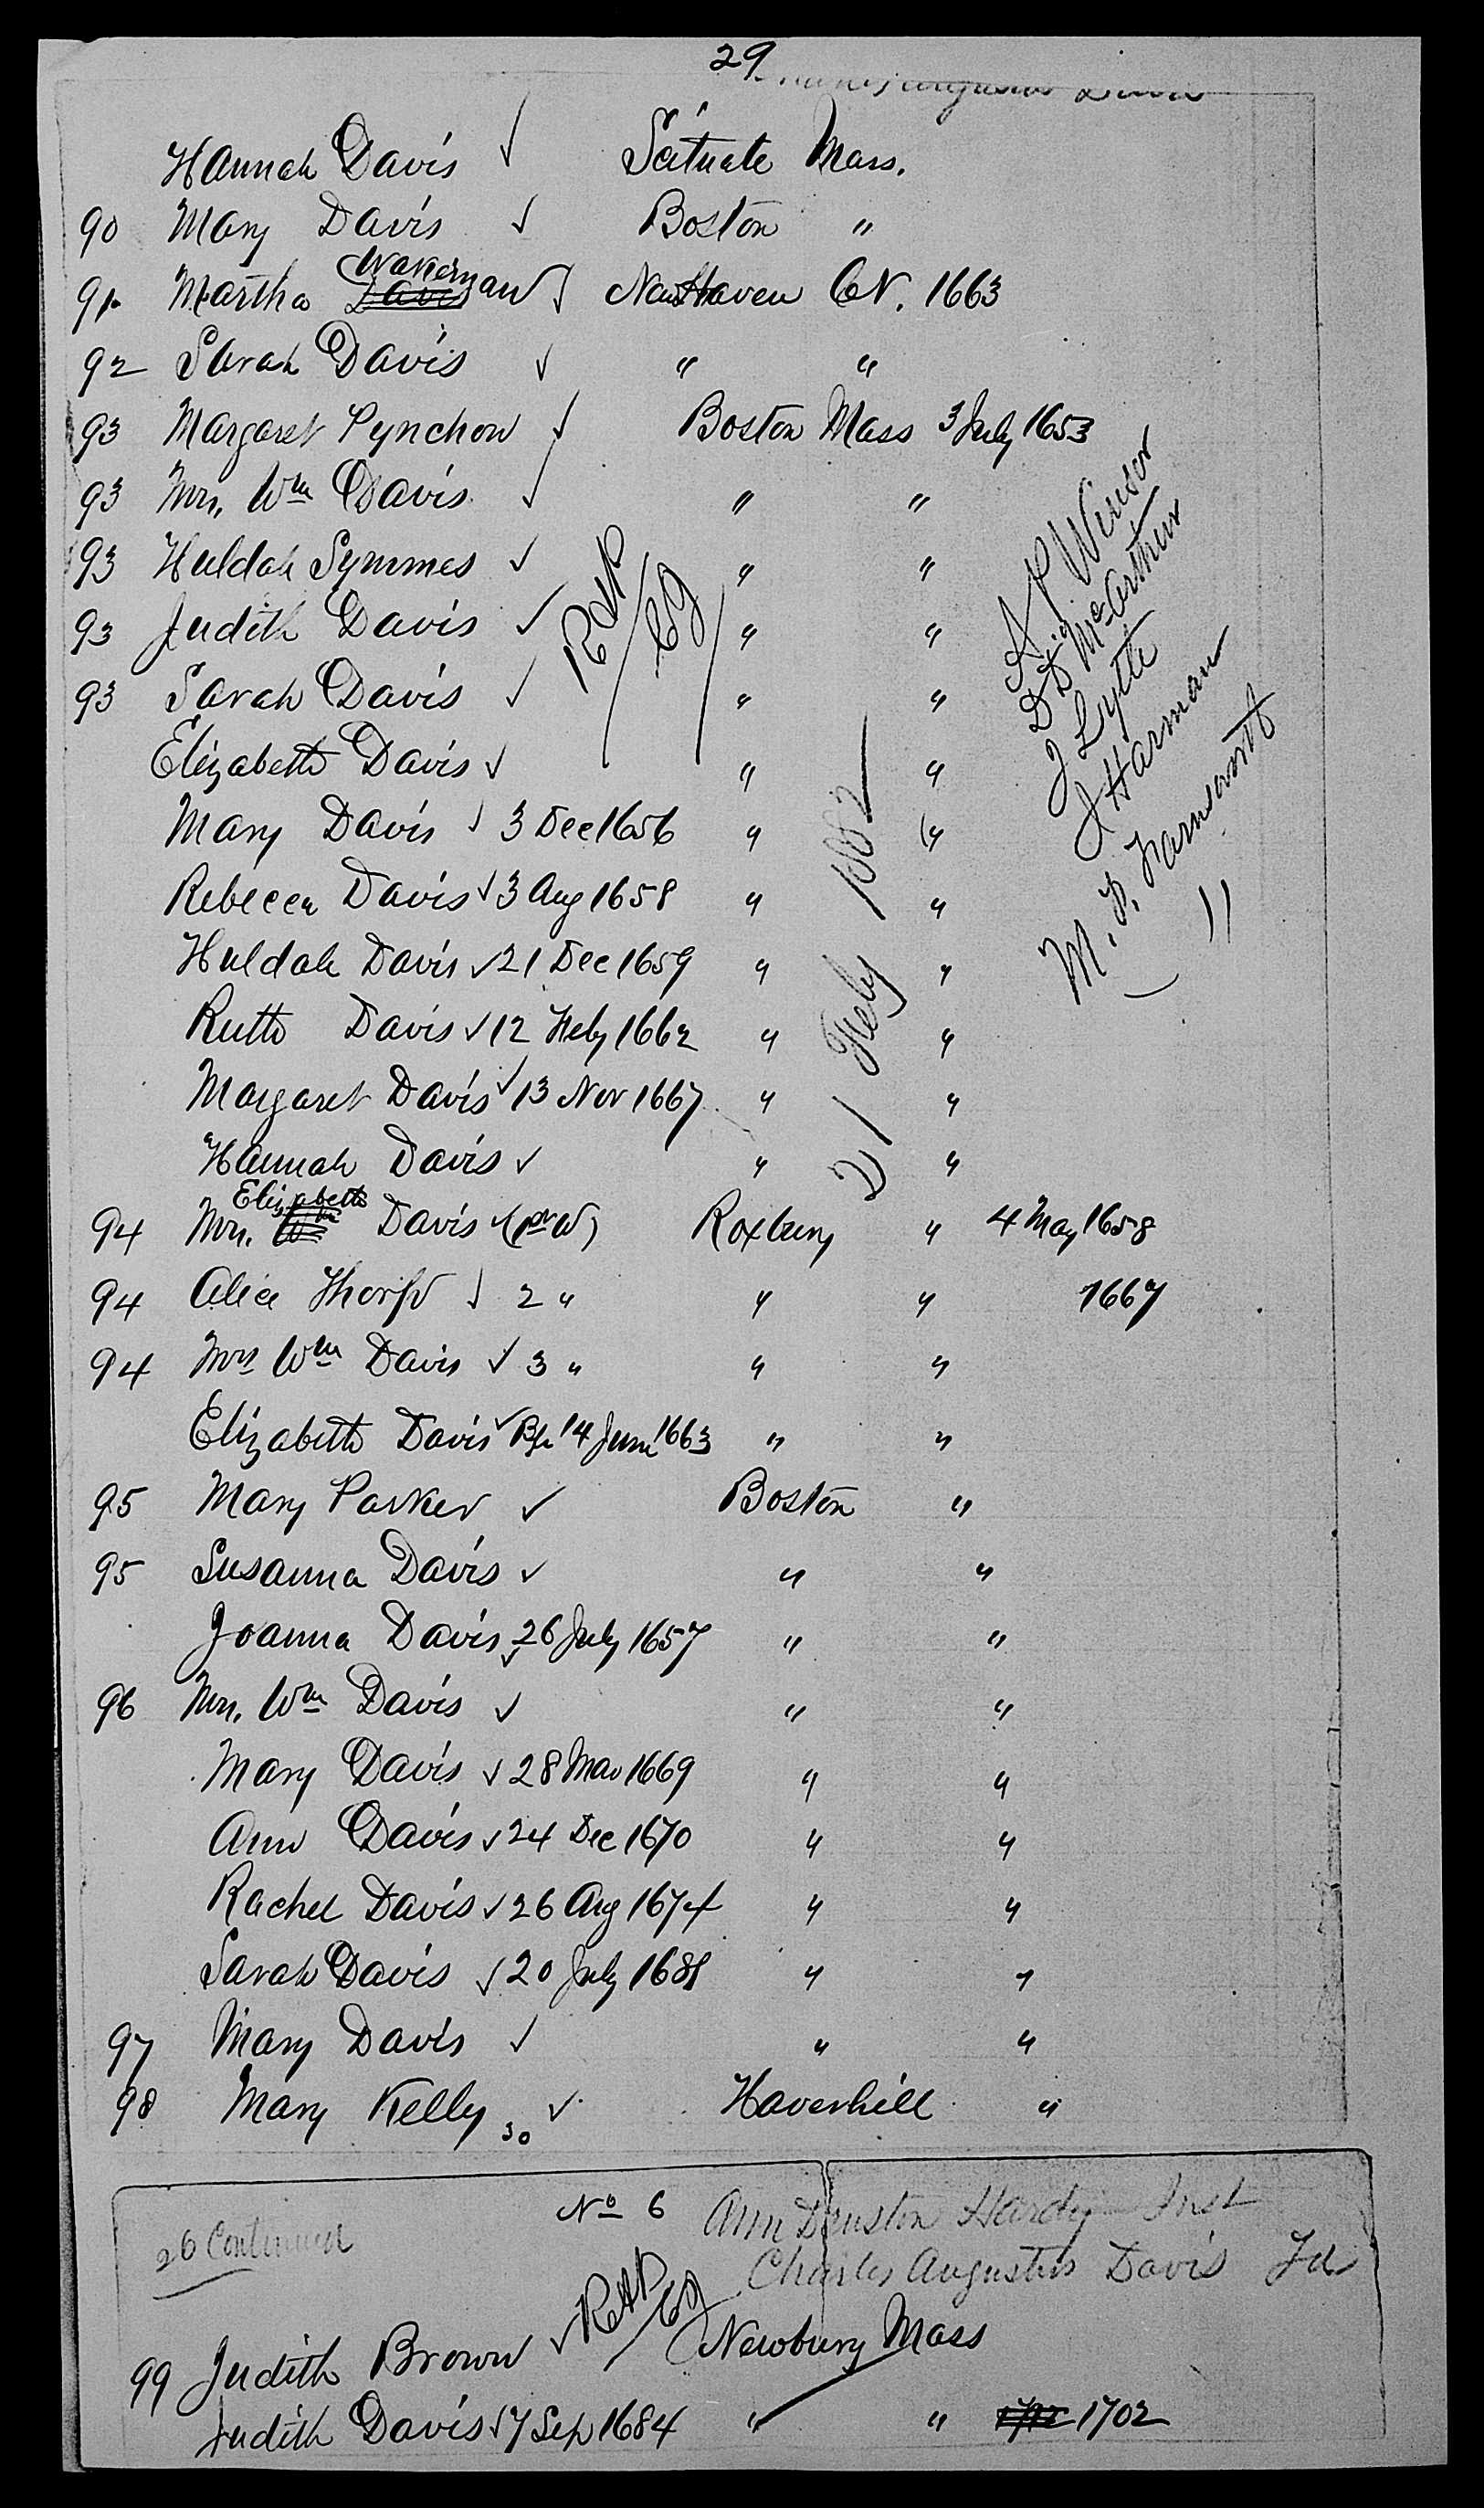 29
Augustus Davis
Hannah Davis ✓ Scituate Mass.
90 Mary Davis ✓ Boston "
91 Martha Wakeman ✓ New Haven Ct. 1663
92 Sarah Davis ✓ " "
93 Margaret Pynchon ✓ Boston Mass 3 July 1653
93 Mrs. Wm Davis ✓ " "
93 Huldah Symmes ✓ " "
93 Judith Davis ✓ " "
93 Sarah Davis ✓ " "
Elizabeth Davis ✓ " "
Mary Davis ✓ 3 Dec 1656 " "
Rebecca Davis ✓ 3 Aug 1658 " "
Huldah Davis ✓ 21 Dec 1659 " "
Ruth Davis ✓ 12 Feby 1662 " "
Margaret Davis ✓ 13 Nov 1667 " "
Hannah Davis ✓ " "
94 Mrs. Elizabeth Davis ✓ (1st W) Roxbury " 4 May 1658
94 Alice Thorp ✓ 2 " " " 1667
94 Mrs Wm Davis ✓ 3 " " "
Elizabeth Davis ✓ Bp 14 June 1663 " "
95 Mary Parker ✓ Boston "
95 Susanna Davis ✓ " "
Joanna Davis ✓ 26 July 1657 " "
96 Mrs. Wm Davis ✓ " "
Mary Davis ✓ 28 Mar 1669 " "
Ann Davis ✓ 24 Dec 1670 " "
Rachel Davis ✓ 26 Aug 1674 " "
Sarah Davis ✓ 20 July 1681 " "
97 Mary Davis ✓ " "
98 Mary Kelly ✓ Haverhill "
30
21 Feby 1882
A P Winsor
D D McArthur
J Lytle
J Harman
M. F. Farnsworth
11
No 6 Ann Duston Hardy Inst
26 Continued
Charles Augustus Davis
99 Judith Brown ✓ Newbury Mass
Judith Davis ✓ 7 Sep 1684 " " 1702